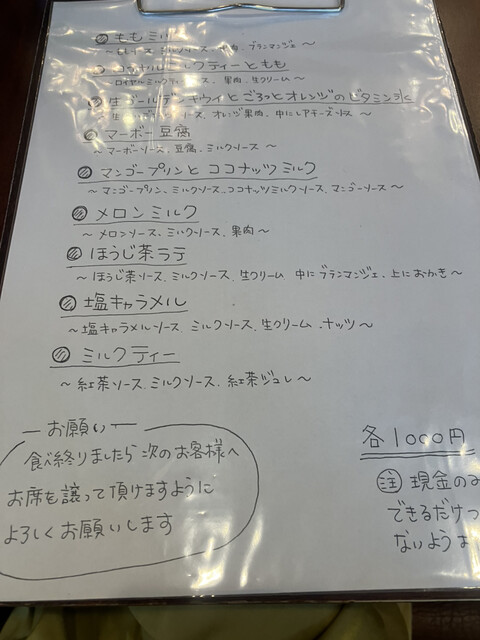 ももミルク
〜ももソース、ミルクソース、果肉、ブランマンジェ〜
ロイヤルミルクティーともも
ロイヤルミルクティーソース、果肉、生クリーム〜
生ゴールデンキウイとごろっとオレンジのビタミン氷
ソース、オレンジ果肉、中にレアチーズソース〜
マーボー豆腐
〜マーボーソース、豆腐、ミルクソース〜
マンゴープリンと ココナッツミルク
〜マンゴープリン、ミルクソース、ココナッツミルクソース、マンゴーソース〜
メロンミルク
〜メロンソース、ミルクソース、果肉〜
ほうじ茶ラテ
〜ほうじ茶ソース、ミルクソース、生クリーム 中にブランマンジェ、上におかき〜
塩キャラメル
〜塩キャラメルソース、ミルクソース、生クリーム、ナッツ〜
ミルクティー
〜紅茶ソース、ミルクソース、紅茶ジュレ〜
お願い
食べ終りましたら次のお客様へ
お席を譲って頂けますように
よろしくお願いします
各1000円
注 現金のみ
できるだけつ
ないよう